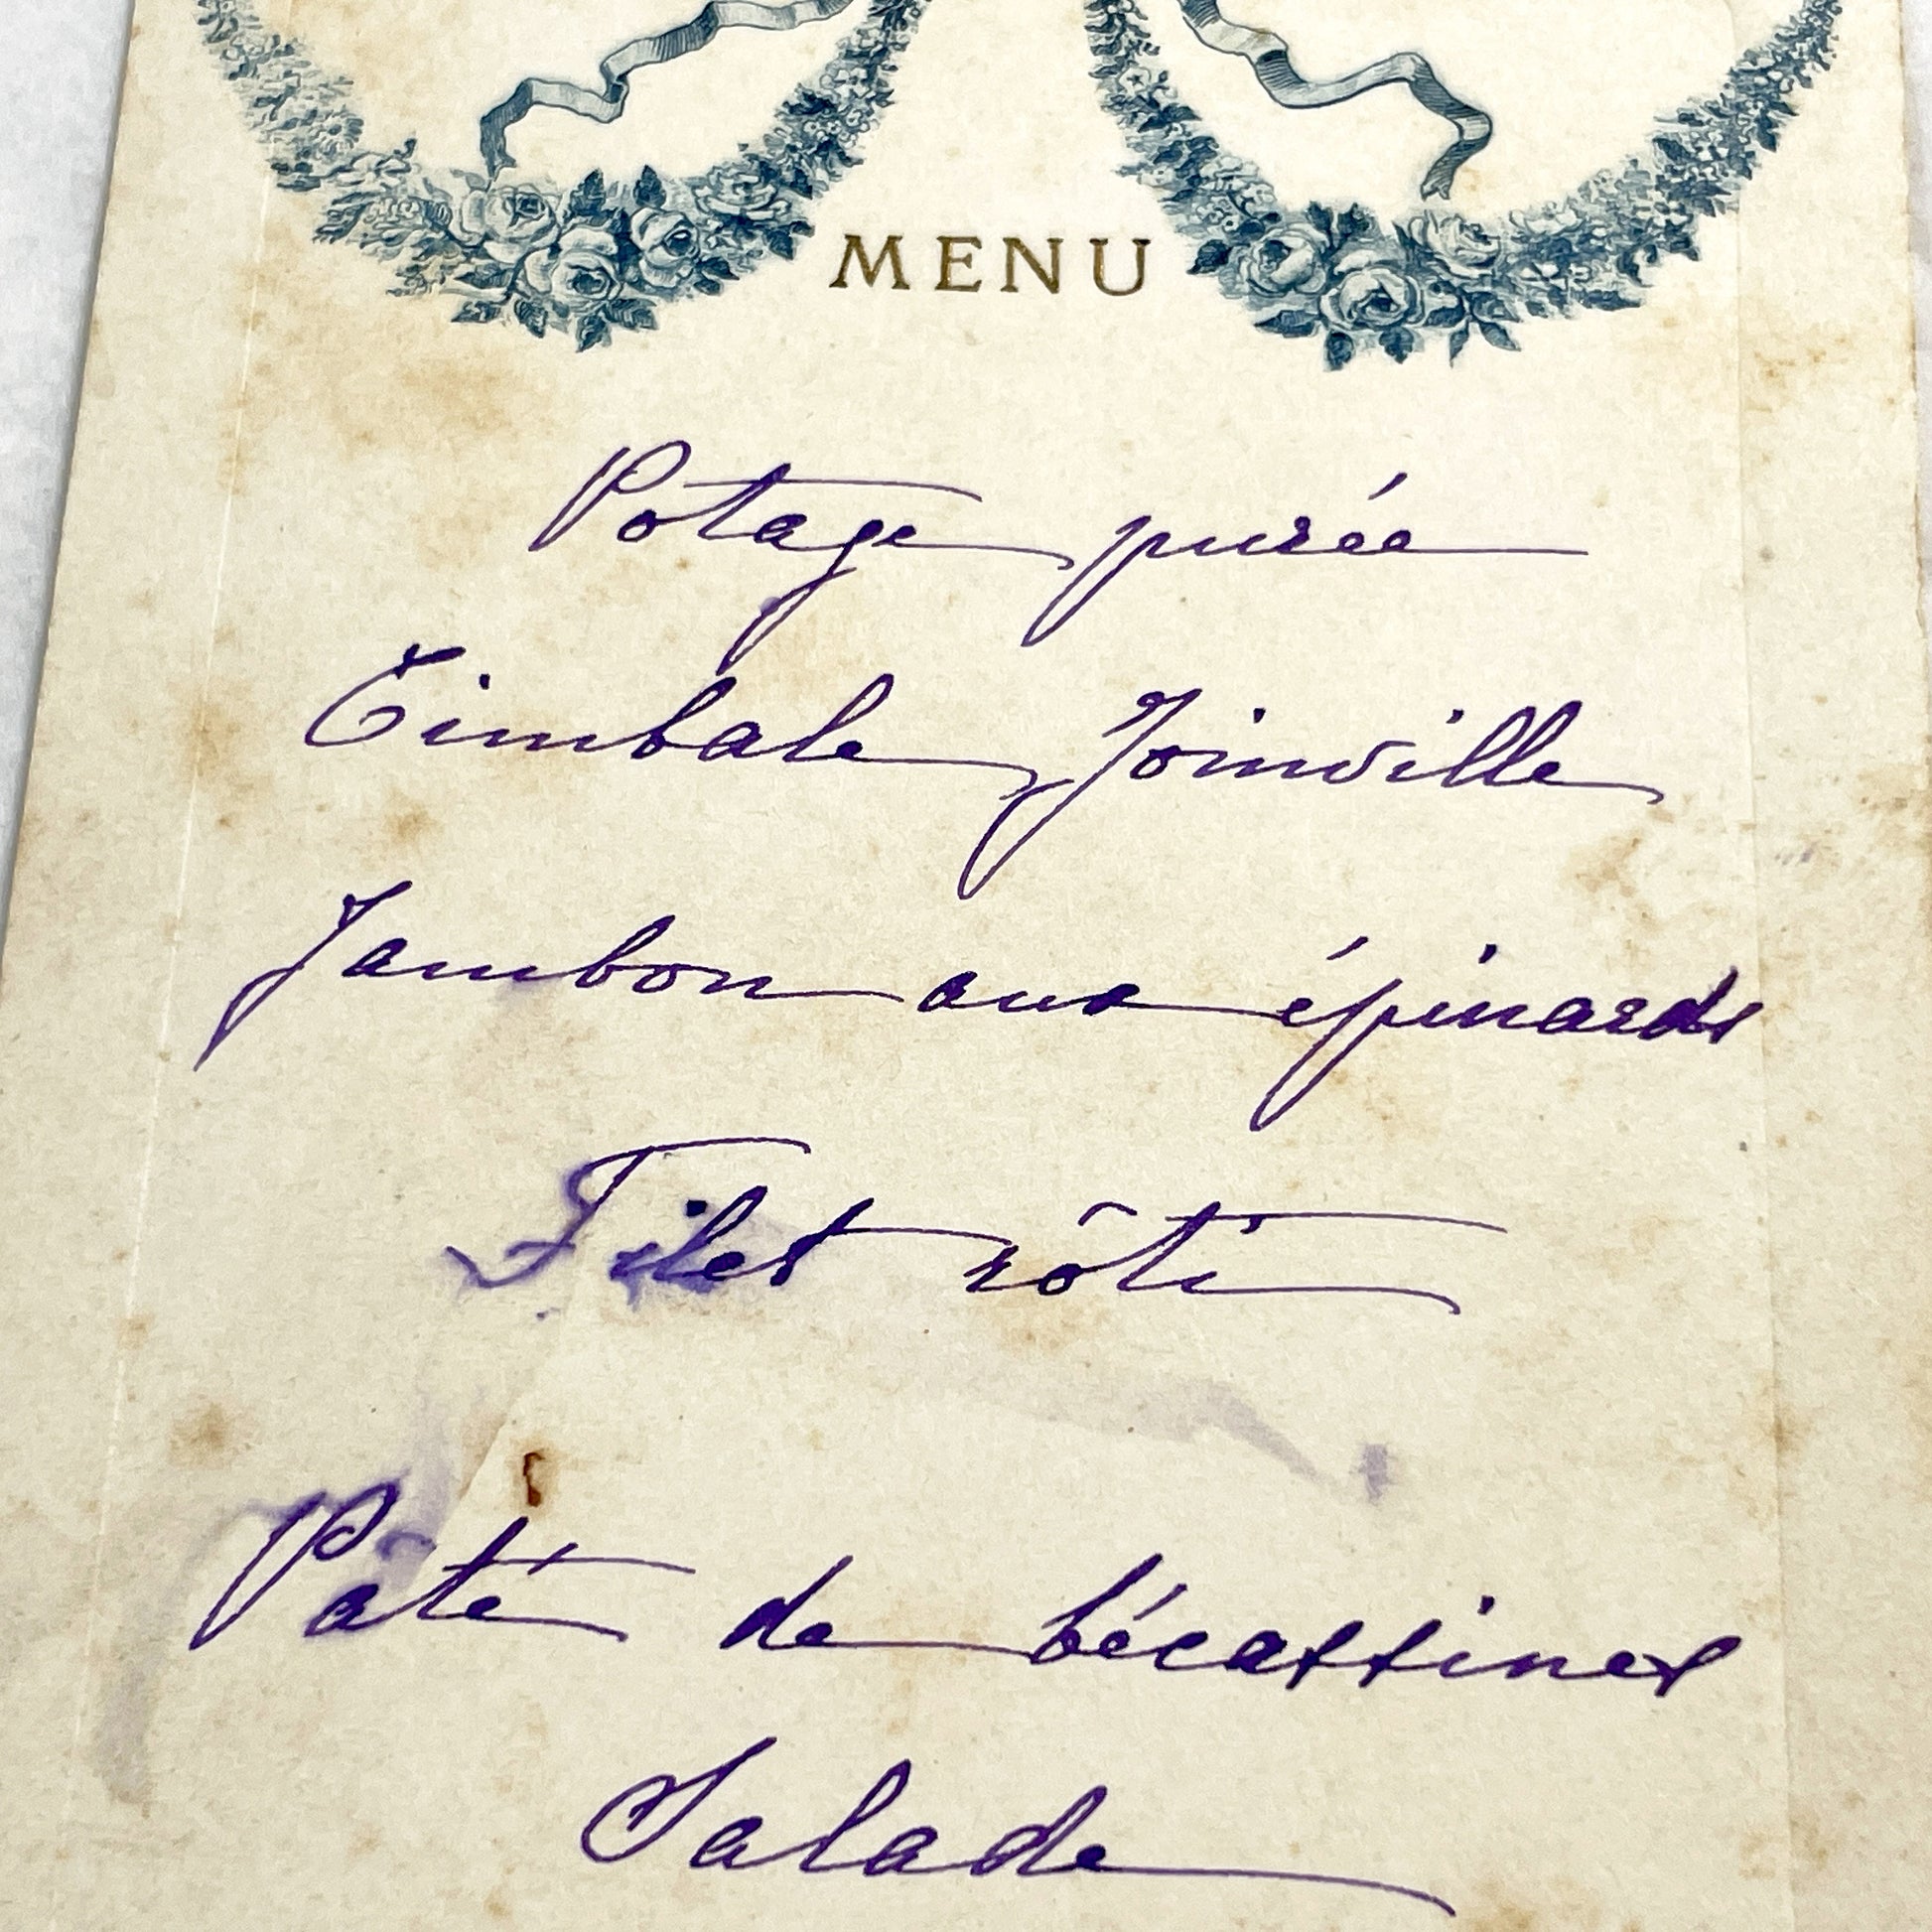 MENU
Potage purée
Timbale Joinville
Jambon aux épinards
Filet rôti
Paté de bécassines
Salade